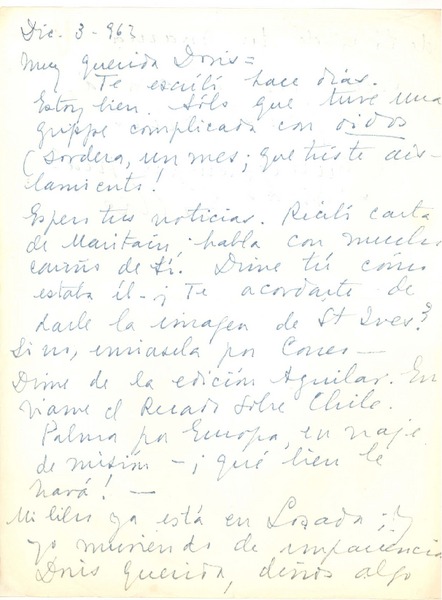 Dic. 3 - 963
Muy querida Doris =
Te escribí hace días.
Estoy bien. Sólo que tuve una
grippe complicada con oidos
(sordera, un mes; que triste ais-
lamiento!
Espero tus noticias. Recibí carta
de Maritain; habla con mucho
cariño de ti. Dime tú cómo
estaba él - ¿Te acordaste de
darle la imagen de St Ives?
Si no, enviasela por Correo —
Dime de la edición Aguilar. En
viame el Recado Sobre Chile.
Palma por Europa, en viaje
de misión - ¡qué bien le
hará! —
Mi libro ya está en Losada; y
yo muriendo de impaciencia
Doris querida, dinos algo